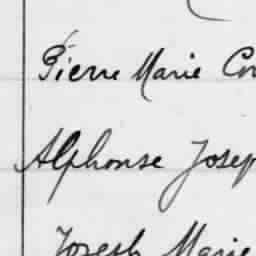 Pierre Marie Co
Alphonse Josep
Joseph Marie